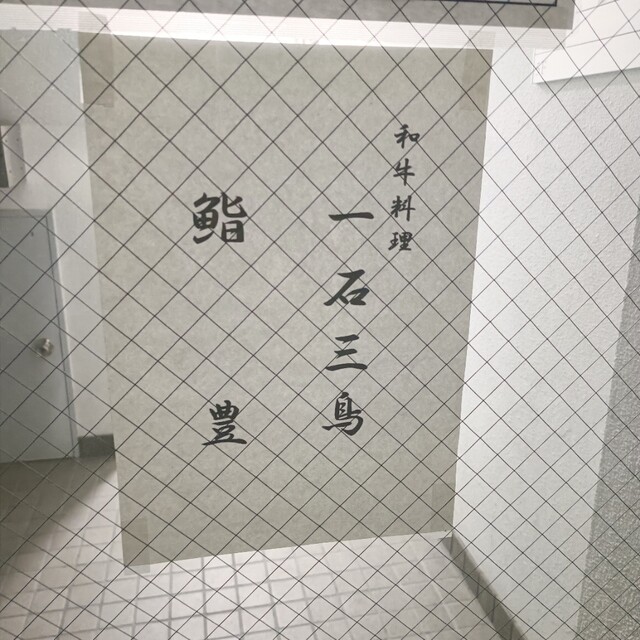 和牛料理
一石三鳥
鮨 豊